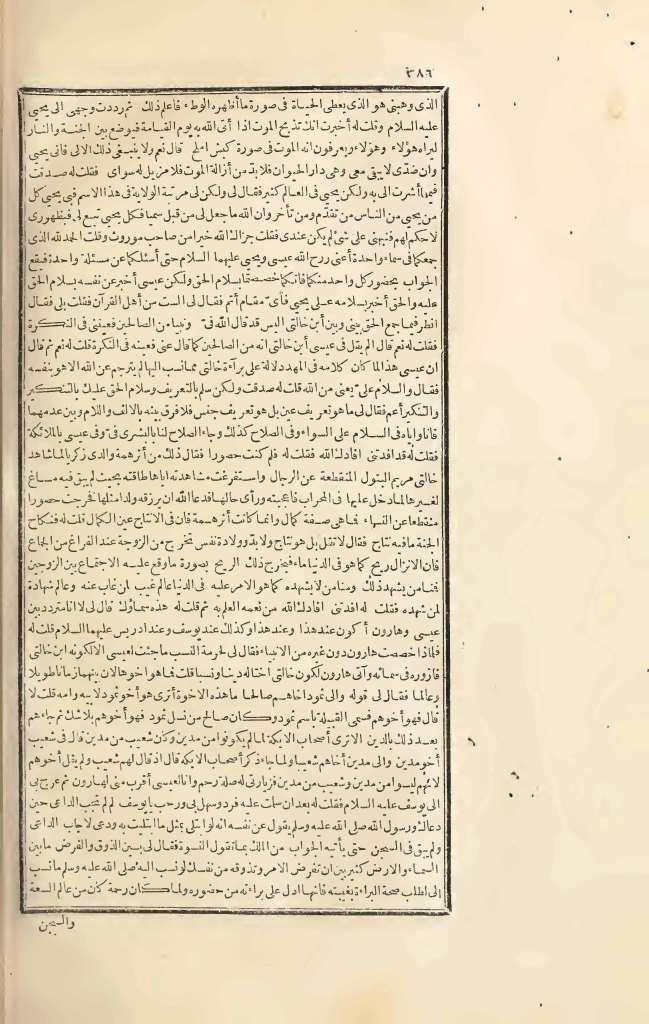 ٣٨٦
الذى وهبنى هو الذى يعطى الحياة فى صورة ما أظهره الوطء فاعلم ذلك ثم رددت وجهى الى يحيى
عليه السلام وقلت له أخبرت انك تذبح الموت اذا أتى الله به يوم القيامة فيوضع بين الجنة والنار
ليراه هؤلاء وهؤلاء ويعرفون انه الموت فى صورة كبش أملح قال نعم ولا ينبغى ذلك الالى فانى يحيى
وان ضدى لا يبقى معى وهى دار الحيوان فلابد من ازالة الموت فلا مزيل له سواى فقلت له صدقت
فيما أشرت الى به ولكن يحيى فى العالم كثير فقال لى ولكن لى مرتبة الاولية فى هذا الاسم فبى يحيى كل
من يحيى من الناس من تقدم ومن تأخر وان الله ما جعل لى من قبل سميا فكل يحيى تبع لى فبظهورى
لا حكم لهم فنبهنى على شئ لم يكن عندى فقلت جزاك الله خيرا من صاحب موروث وقلت الحمد لله الذى
جمعكما فى سماء واحدة أعنى روح الله عيسى ويحيى عليهما السلام حتى أسئلكما عن مسئلة واحدة فيقع
الجواب بحضور كل واحد منكما فانكما خصصتما بسلام الحق ولكن عيسى أخبر عن نفسه بسلام الحق
عليه والحق أخبر بسلامه على يحيى فأى مقام أتم فقال لى الست من أهل القرآن فقلت بلى فقال
انظر فيما جمع الحق بينى وبين أبن خالتى أليس قد قال الله فى ونبيا من الصالحين فعيننى فى النكرة
فقلت له نعم قال ألم يقل فى عيسى أبن خالتى انه من الصالحين كما قال عنى فعينه فى النكرة قلت له نعم ثم قال
ان عيسى هذا لما كان كلامه فى المهد دلالة على براءة خالتى مما نسب اليها لم يترجم عن الله الا هو بنفسه
فقال والسلام على يعنى من الله قلت له صدقت ولكن سلم بالتعريف وسلام الحق عليك بالتنكير
والتنكير أعم فقال لى ما هو تعريف عين بل هو تعريف جنس فلا فرق بينه بالالف واللام وبين عدمهما
فانا واياه فى السلام على السواء وفى الصلاح كذلك وجاء الصلاح لنا بالبشرى فى وفى عيسى بالملائكة
فقلت له قد افدتنى افادك الله فقلت له فلم كنت حصورا فقال ذلك من أثر همة والدى زكريا لما شاهد
خالتى مريم البتول المنقطعة عن الرجال واستفرغت مشاهدته اياها طاقته بحيث لم يبق فيه مساغ
لغيرها لما دخل عليها فى المحراب فأعجبته ورأى حالها فدعا الله ان يرزقه ولدا مثلها فخرجت حصورا
منقطعا عن النساء فما هى صفة كمال وانما كانت أثر همة فان فى الانتاج عين الكمال قلت له فنكاح
الجنة ما فيه نتاج فقال لا تقل بل هو نتاج ولابد وولادة نفس تخرج من الزوجة عند الفراغ من الجماع
فان الانزال ريح كما هو فى الدنيا ماء فيخرج ذلك الريح بصورة ما وقع عليه الاجتماع بين الزوجين
فمنا من يشهد ذلك ومنا من لا يشهده كما هو الامر عليه فى الدنيا عالم غيب لمن غاب عنه وعالم شهادة
لمن شهده فقلت له افدتنى افادك الله من نعمه العلم به ثم قلت له هذه سماؤك قال لى لا انا متردد بين
عيسى وهارون أكون عند هذا وعند هذا وكذلك عند يوسف وعند ادريس عليهما السلام قلت له
فلماذا خصصت هارون دون غيره من الانبياء فقال لى لحرمة النسب ما جئت لعيسى الا لكونه ابن خالتى
فازوره فى سمائه وآتى هارون لكون خالتى أختا له دينا ونسبا قلت فما هو اخوها لان بينهما زمانا طويلا
وعالما فقال لى قوله والى ثمود أخاهم صالحا ما هذه الاخوة أترى هو أخو ثمود لابيه وامه قلت لا
قال فهو أخوهم فسمى القبيلة باسم ثمود وكان صالح من نسل ثمود فهو أخوهم بلا شك ثم جاءهم
بعد ذلك بالدين الاترى أصحاب الايكة لما لم يكونوا من مدين وكان شعيب من مدين قال فى شعيب
أخو مدين والى مدين أخاهم شعيبا ولما جاء ذكر أصحاب الايكة قال اذ قال لهم شعيب ولم يقل أخوهم
لانهم ليسوا من مدين وشعيب من مدين فزيارتى له صلة رحم وانا لعيسى أقرب منى لهارون ثم عرج بى
الى يوسف عليه السلام فقلت له بعد ان سلمت عليه فرد وسهل بى ورحب يا يوسف لم لم تجب الداعى حين
دعاك ورسول الله صلى الله عليه وسلم يقول عن نفسه انه لو ابتلى بمثل ما ابتليت به ودعى لاجاب الداعى
ولم يبق فى السجن حتى يأتيه الجواب من الملك بما تقول النسوة فقال لى بين الذوق والفرض ما بين
السماء والارض كثير بين ان تفرض الامر وتذوقه من نفسك لو نسب اليه صلى الله عليه وسلم ما نسب
الى لطلب صحة البراءة بغيبته فانها ادل على براءته من حضوره ولما كان رحمة كان من عالم السعة
والسجن